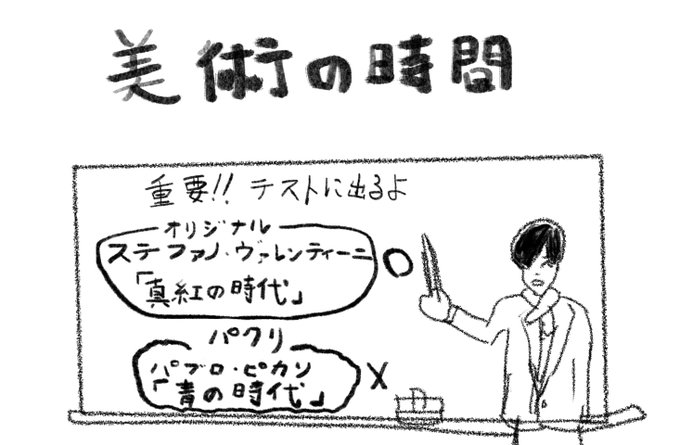 美術の時間
重要!! テストに出るよ
オリジナル
ステファノ・ヴァレンティーニ
「真紅の時代」
○
パクリ
パブロ・ピカソ
「青の時代」
×